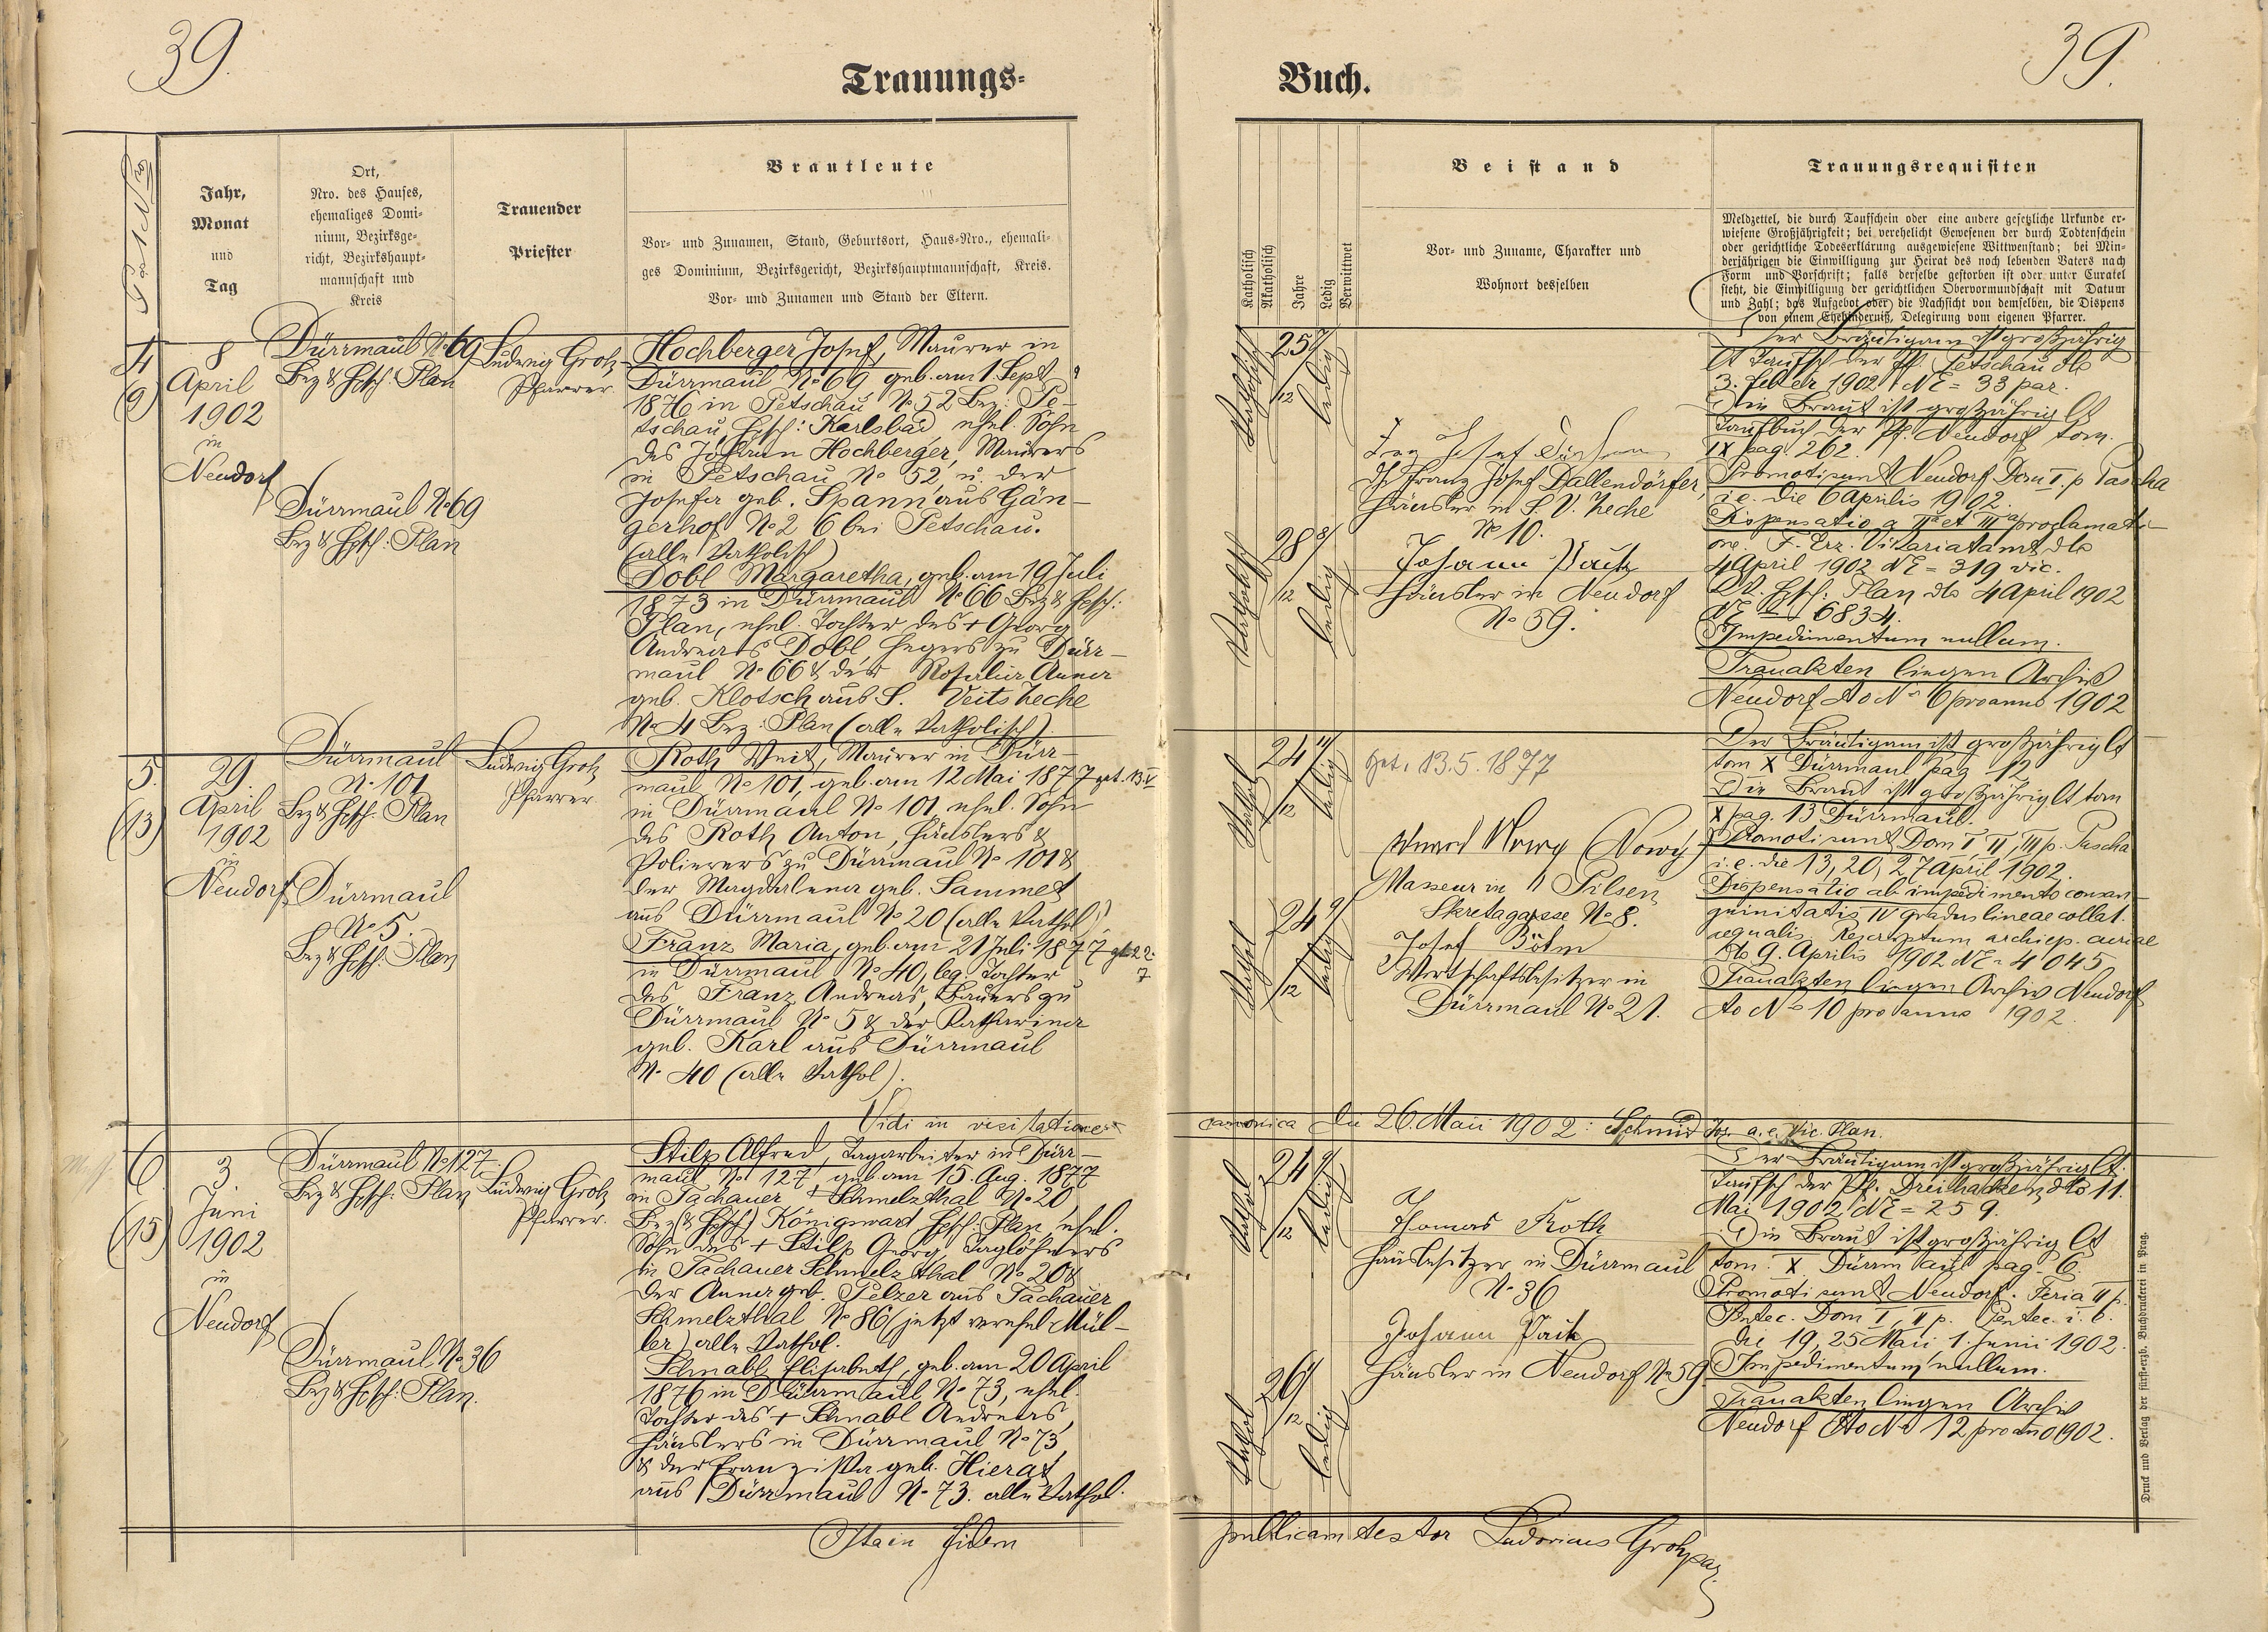 39.
39.
Trauungs-
Buch.
Post No
Jahr,
Monat
und
Tag
Ort,
Nro. des Hauses,
ehemaliges Domi-
nium, Bezirksge-
richt, Bezirkshaupt-
mannschaft und
Kreis
Trauender
Priester
Brautleute
Vor- und Zunamen, Stand, Geburtsort, Haus-Nro., ehemali-
ges Dominium, Bezirksgericht, Bezirkshauptmannschaft, Kreis.
Vor- und Zunamen und Stand der Eltern.
Katholisch
Akatholisch
Jahre
Ledig
Verwittwet
Beistand
Vor- und Zuname, Charakter und
Wohnort desselben
Trauungsrequisiten
Meldzettel, die durch Taufschein oder eine andere gesetzliche Urkunde er-
wiesene Großjährigkeit; bei verehelicht Gewesenen der durch Todtenschein
oder gerichtliche Todeserklärung ausgewiesene Wittwenstand; bei Min-
derjährigen die Einwilligung zur Heirat des noch lebenden Vaters nach
Form und Vorschrift; falls derselbe gestorben ist oder unter Curatel
steht, die Einwilligung der gerichtlichen Obervormundschaft mit Datum
und Zahl; das Aufgebot oder die Nachsicht von demselben, die Dispens
von einem Ehehinderniß, Delegirung vom eigenen Pfarrer.
4
(9)
8
April
1902
in
Neudorf
Dürrmaul No 69
Bez & Hptsch: Plan
Dürrmaul No 69
Bez & Hptsch: Plan
Ludwig Grotz
Pfarrer.
Hochberger Josef, Maurer in
Dürrmaul No 69 geb. am 1. Sept
1876 in Petschau No 52 Bez. Pe-
tschau, Hptsch: Karlsbad ehel. Sohn
des Johann Hochberger, Maurers
in Petschau No 52, u. der
Josefa geb. Spann aus Gän-
gerhof No 26 bei Petschau.
(alle katholisch)
Dobl Margaretha, geb. am 19 Juli
1873 in Dürrmaul No 66 Bez & Hptsch:
Plan, ehel. Tochter des + Georg
Andreas Dobl, Hegers zu Dürr-
maul No 66 & der Rosalia Anna
geb. Klotsch aus S. Veits Zeche
No 4 Bez: Plan (alle katholisch).
Katholisch
25 7/12
ledig
Katholisch
28 8/12
ledig
di Franz Josef Dallendörfer,
Häusler in S. V. Zeche
No 10.
Johann Pautz
Häusler in Neudorf
No 59.
Der Bräutigam ist großjährig
lt Taufsch der Pf. Petschau dto
3. Feber 1902 NE = 33 par.
Die Braut ist großjährig lt
Taufbuch der Pf. Neudorf tom.
IX pag. 262.
Promoti sunt Neudorf Dom I. p Pascha
i.e. die 6 Aprilis 1902.
Dispensatio a IIa et IIIa proclamati-
one. F. Erz. Vikariatamt dto
4 April 1902 NE = 319 vic.
Bz. Hptsch: Plan dto 4 April 1902
NE = 6834.
Impedimentum nullum.
Trauakten liegen Archiv
Neudorf ad No 6 pro anno 1902
5.
(13)
29.
April
1902
in
Neudorf
Dürrmaul
No 101
Bez & Hptsch: Plan
Dürrmaul
No 5.
Bez & Hptsch: Plan
Ludwig Grotz
Pfarrer.
Roth Veit, Maurer in Dürr-
maul No 101, geb. am 12 Mai 1877 get. 13.V
in Dürrmaul No 101, ehel. Sohn
des Roth Anton, Häuslers &
Polierers zu Dürrmaul No 101 &
der Magdalena geb. Sammet
aus Dürrmaul No 20 (alle kathol)
Franz Maria, geb. am 21 Juli 1877 gt. 22.
7
in Dürrmaul No 40, leg. Tochter
des Franz Andreas, Bauers zu
Dürrmaul No 5 & der Katharina
geb. Karl aus Dürrmaul
No 40 (alle kathol).
Kathol
24 11/12
ledig
Kathol
24 9/12
ledig
get. 13.5.1877
Eduard Nowy (Nowy)
Masseur in Pilsen
Skretagasse No 8.
Josef Böhm
Wirtschaftsbesitzer in
Dürrmaul No 21.
Der Bräutigam ist großjährig lt
tom X Dürrmaul pag 12
Die Braut ist großjährig lt tom
X pag. 13 Dürrmaul.
Promoti sunt Dom I II, III p. Pascha
i.e. die 13, 20, 27 April 1902.
Dispensatio ab impedimento consan-
guinitatis IV gradus lineae collat.
aequalis. Rescriptum archiep. curiae
dto 9. Aprilis 1902 NE = 4045
Trauakten liegen Archiv Neudorf
ad No 10 pro anno 1902.
Vidi in visitatione
canonica die 26. Maii 1902: Schmid a. e. Vic. Plan.
6
(15)
3
Juni
1902
in
Neudorf
Dürrmaul No 127
Bez & Hptsch: Plan
Dürrmaul No 36
Bez & Hptsch: Plan.
Ludwig Grotz
Pfarrer.
Stilp Alfred, Tagarbeiter in Dürr-
maul No 127 geb. am 15. Aug. 1877
in Tachauer Schmelzthal No 20
Bez (& Hptsch) Königswart Hptsch: Plan, ehel.
Sohn des + Stilp Georg, Taglöhners
in Tachauer Schmelzthal No 20 &
der Anna geb. Pelzer aus Tachauer
Schmelzthal No 86 (jetzt verehel Mül-
ler) alle kathol.
Schnabl Elisabeth, geb. am 20 April
1876 in Dürrmaul No 73, ehel.
Tochter des + Schnabl Andreas,
Häuslers in Dürrmaul No 73
& der Franziska geb. Hierat
aus Dürrmaul No 73. alle kathol.
Kathol
24 9/12
ledig
Kathol
26 1/12
ledig
Thomas Roth
Hausbesitzer in Dürrmaul
No 36
Johann Pautz
Häusler in Neudorf No 59
Der Bräutigam ist großjährig lt.
Taufsch der Pf. Dreihacken dto 11.
Mai 1902 NE = 259.
Die Braut ist großjährig lt
tom. X Dürrmaul pag. 6.
Promoti sunt Neudorf. Feria II p.
Pentec. Dom I, II p. Pentec. i. e.
die 19, 25 Maii, 1. Junii 1902.
Impedimentum nullum.
Trauakten liegen Archiv
Neudorf ad No 12 pro anno 1902.
Druck und Verlag der fürst-erzb. Buchdruckerei in Prag.
Ita in fidem
publicam testor Ludovicus Grotz par.